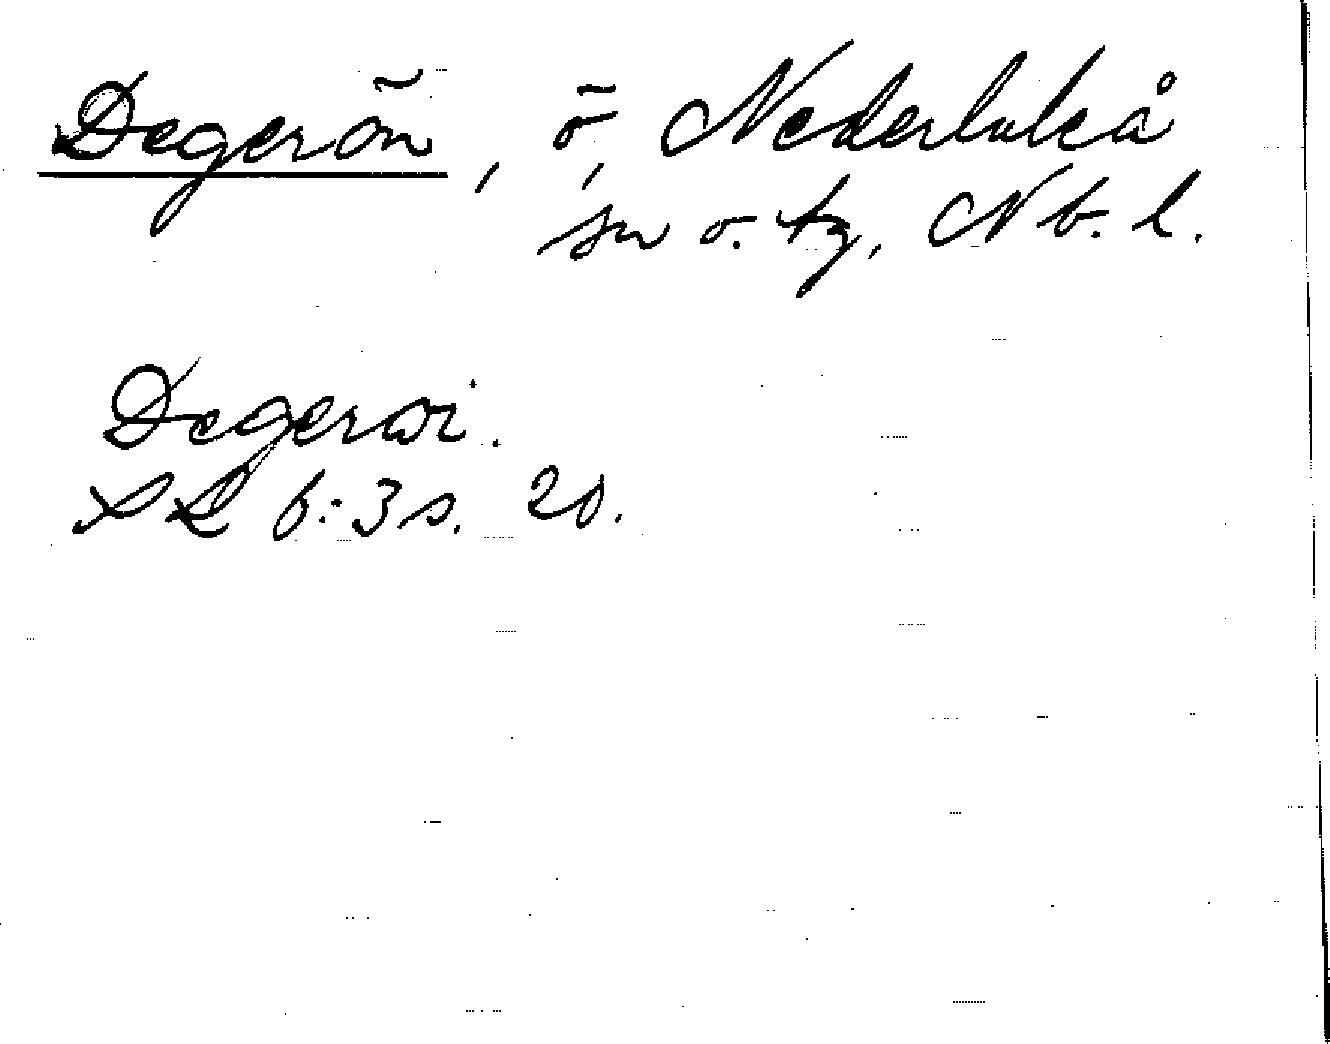 Degerön, ö, Nederluleå
sn o. tg, Nb. l.
Degeröi.
SL 6:3 s. 20.